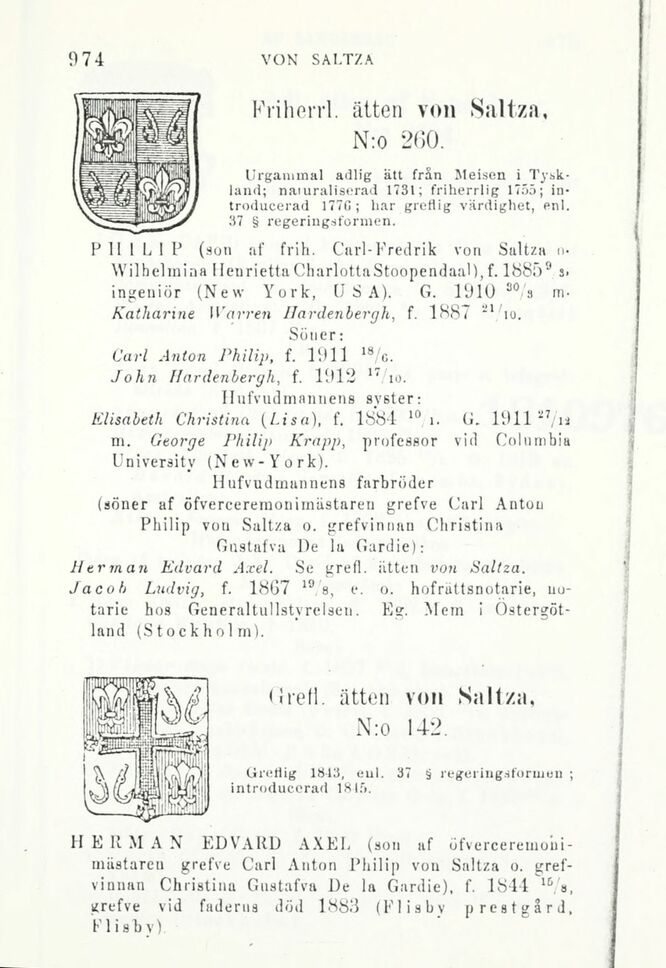 974 VON SALTZA
Friherrl. ätten von Saltza,
N:o 260.
Urgammal adlig ätt från Meisen i Tysk-
land; naturaliserad 1731; friherrlig 1755; in-
troducerad 1776; har greflig värdighet, enl.
37 § regeringsformen.
PHILIP (son af frih. Carl-Fredrik von Saltza o.
Wilhelmina Henrietta Charlotta Stoopendaal), f. 1885 9/3,
ingeniör (New York, USA). G. 1910 30/3 m.
Katharine Warren Hardenbergh, f. 1887 21/10.
Söner:
Carl Anton Philip, f. 1911 18/6.
John Hardenbergh, f. 1912 17/10.
Hufvudmannens syster:
Elisabeth Christina (Lisa), f. 1884 10/1. G. 1911 27/12
m. George Philip Krapp, professor vid Columbia
University (New-York).
Hufvudmannens farbröder
(söner af öfverceremonimästaren grefve Carl Anton
Philip von Saltza o. grefvinnan Christina
Gustafva De la Gardie):
Herman Edvard Axel. Se grefl. ätten von Saltza.
Jacob Ludvig, f. 1867 19/8, e. o. hofrättsnotarie, no-
tarie hos Generaltullstyrelsen. Eg. Mem i Östergöt-
land (Stockholm).
Grefl. ätten von Saltza,
N:o 142.
Greflig 1843, enl. 37 § regeringsformen;
introducerad 1845.
HERMAN EDVARD AXEL (son af öfverceremoni-
mästaren grefve Carl Anton Philip von Saltza o. gref-
vinnan Christina Gustafva De la Gardie), f. 1844 15/8,
grefve vid faderns död 1883 (Flisby prestgård,
Flisby)